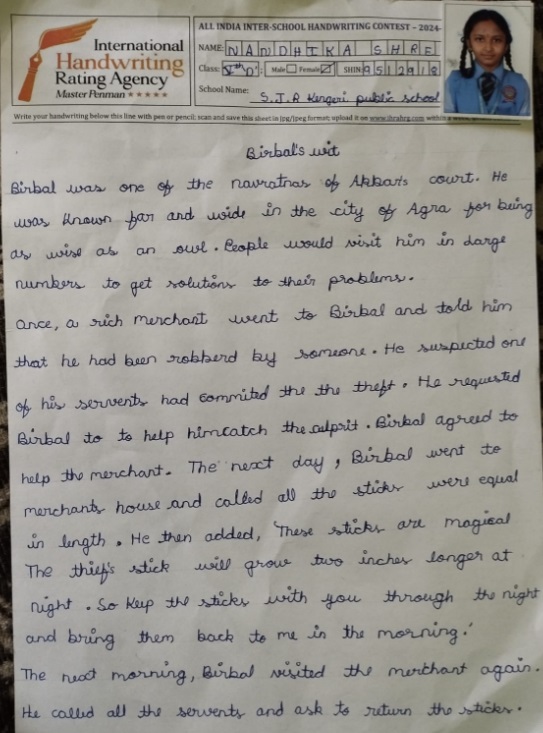 International
Handwriting
Rating Agency
Master Penman ★★★★★
ALL INDIA INTER-SCHOOL HANDWRITING CONTEST - 2024-
NAME: NANDHIKA SHRE
Class: Vth 'D' Male Female SHIN: 9512918
School Name: S.J.R Kengeri public school
Write your handwriting below this line with pen or pencil; scan and save this sheet in jpg/jpeg format; upload it on www.ihrahrg.com within
Birbal's wit
Birbal was one of the navratnas of Akbar's court. He
was known far and wide in the city of Agra for being
as wise as an owl. People would visit him in large
numbers to get solutions to their problems.
Once, a rich merchant went to Birbal and told him
that he had been robberd by someone. He suspected one
of his servents had commited the the theft. He requested
Birbal to to help himcatch the culprit. Birbal agreed to
help the merchant. The next day, Birbal went to
merchants house and called all the sticks were equal
in length. He then added, 'These sticks are magical
The thief's stick will grow two inches longer at
night. So keep the sticks with you through the night
and bring them back to me in the morning.'
The next morning, Birbal visited the merchant again.
He called all the servents and ask to return the sticks.